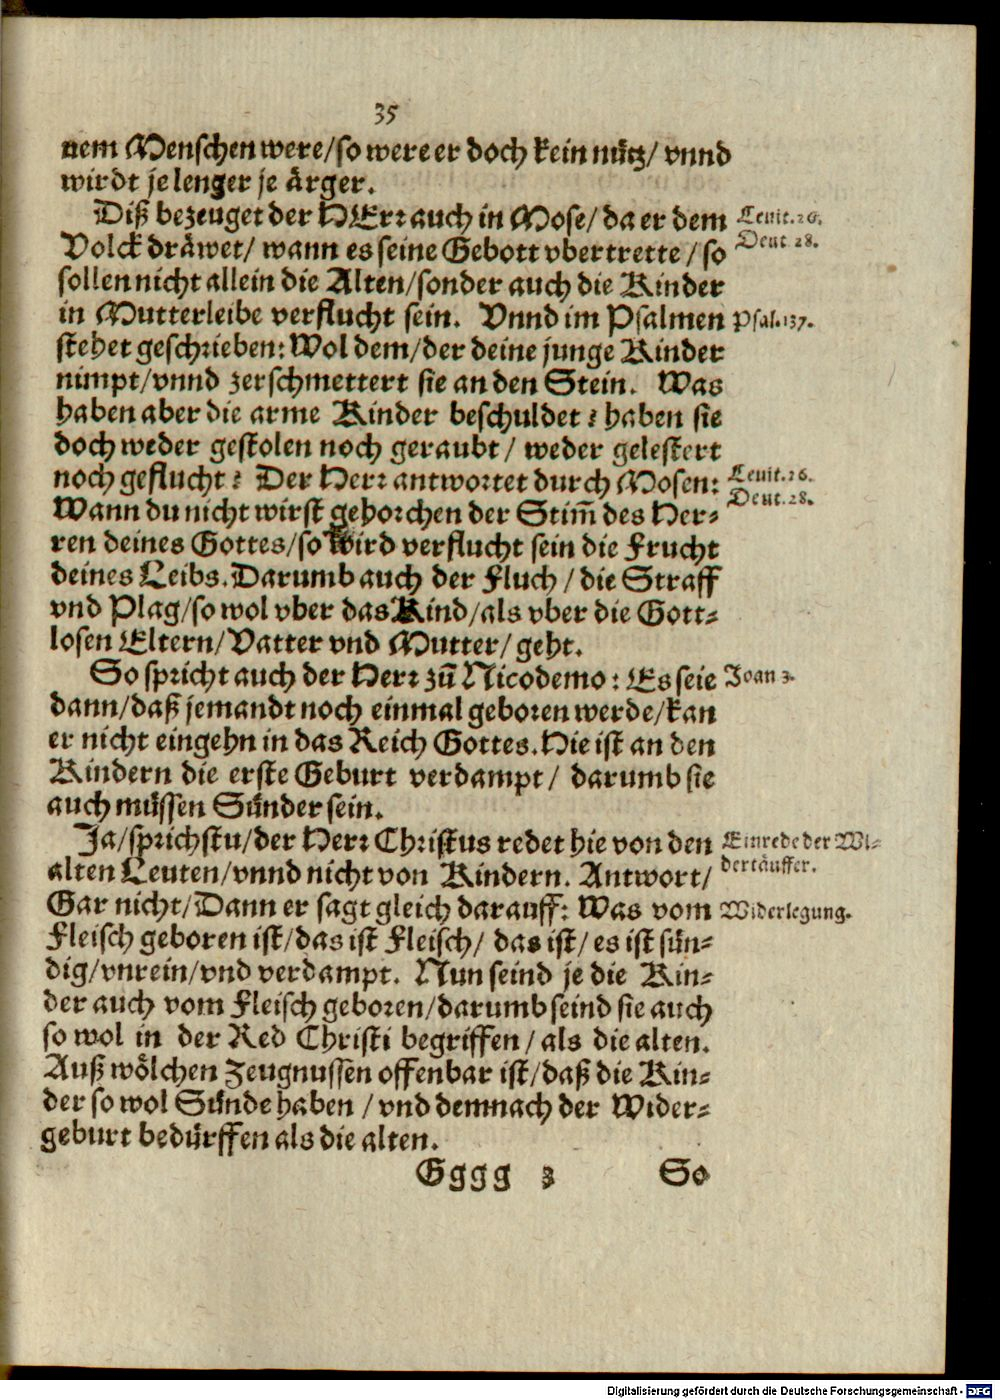 35
nem Menschen were/so were er doch kein nütz/ vnnd
wirdt je lenger je ärger.
Diß bezeuget der HErr auch in Mose/ da er dem
Leuit. 26.
Volck dräwet/ wann es seine Gebott vbertrette /so
Deut 28.
sollen nicht allein die Alten/sonder auch die Kinder
in Mutterleibe verflucht sein. Vnnd im Psalmen
Psal.137.
stehet geschrieben: Wol dem/der deine junge Kinder
nimpt/vnnd zerschmettert sie an den Stein. Was
haben aber die arme Kinder beschuldet? haben sie
doch weder gestolen noch geraubt/ weder gelestert
noch geflucht? Der Herr antwortet durch Mosen:
Leuit.26.
Wann du nicht wirst gehorchen der Stim̃ des Her-
Deut.28.
ren deines Gottes/so wird verflucht sein die Frucht
deines Leibs. Darumb auch der Fluch /die Straff
vnd Plag/so wol vber das Kind/als vber die Gott-
losen Eltern/Vatter vnd Mutter/ geht.
So spricht auch der Herr zů Nicodemo: Es seie
Joan 3.
dann/daß jemandt noch einmal geboren werde/kan
er nicht eingehn in das Reich Gottes. Hie ist an den
Kindern die erste Geburt verdampt/ darumb sie
auch müssen Sünder sein.
Ja/sprichstu/der Herr Christus redet hie von den
Einrede der Wi-
alten Leuten/vnnd nicht von Kindern. Antwort/
dertäuffer.
Gar nicht/Dann er sagt gleich darauff: Was vom
Widerlegung.
Fleisch geboren ist/das ist Fleisch/ das ist/es ist sün-
dig/vnrein/vnd verdampt. Nun seind je die Kin-
der auch vom Fleisch geboren/darumb seind sie auch
so wol in der Red Christi begriffen/als die alten.
Auß wölchen Zeugnussen offenbar ist/daß die Kin-
der so wol Sünde haben /vnd demnach der Wider-
geburt bedürffen als die alten.
Gggg 3 So
Digitalisierung gefördert durch die Deutsche Forschungsgemeinschaft - DFG